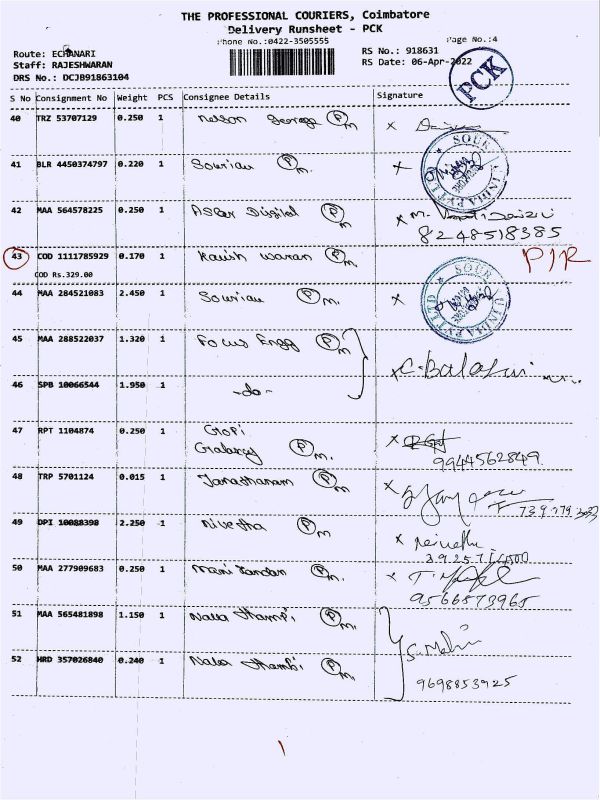 THE PROFESSIONAL COURIERS, Coimbatore
Delivery Runsheet - PCK
Phone No.:0422-3505555
Page No.:4
Route: ECHANARI
RS No.: 918631
Staff: RAJESHWARAN
RS Date: 06-Apr-2022
DRS No.: DCJB91863104
PCK
S No Consignment No Weight PCS Consignee Details Signature
40 TRZ 53707129 0.250 1 Nelson George Pm x
41 BLR 4450374797 0.220 1 Souriau Pm x
SOURIAU INDIA PVT LTD
42 MAA 564578225 0.250 1 Aster Digital Pm x M.
8248518385
43 COD 1111785929 0.170 1 Kavish waran Pm PIR
COD Rs.329.00
44 MAA 284521083 2.450 1 Souriau Pm. x
SOURIAU INDIA PVT LTD
45 MAA 288522037 1.320 1 Focus Engg Pm
x C. Balaguru
46 SPB 10066544 1.950 1 -do-
47 RPT 1104874 0.250 1 Gopi
Galaxy Pm. x
9944562849
48 TRP 5701124 0.015 1 Janarthanam Pm x
49 DPI 10088398 2.250 1 Nivetha Pm x Nivetha
50 MAA 277909683 0.250 1 Pm. x
9566873965
51 MAA 565481898 1.150 1 Nalla thambi Pm.
52 HRD 357026840 0.240 1 Nalla thambi Pm
9698853925
1